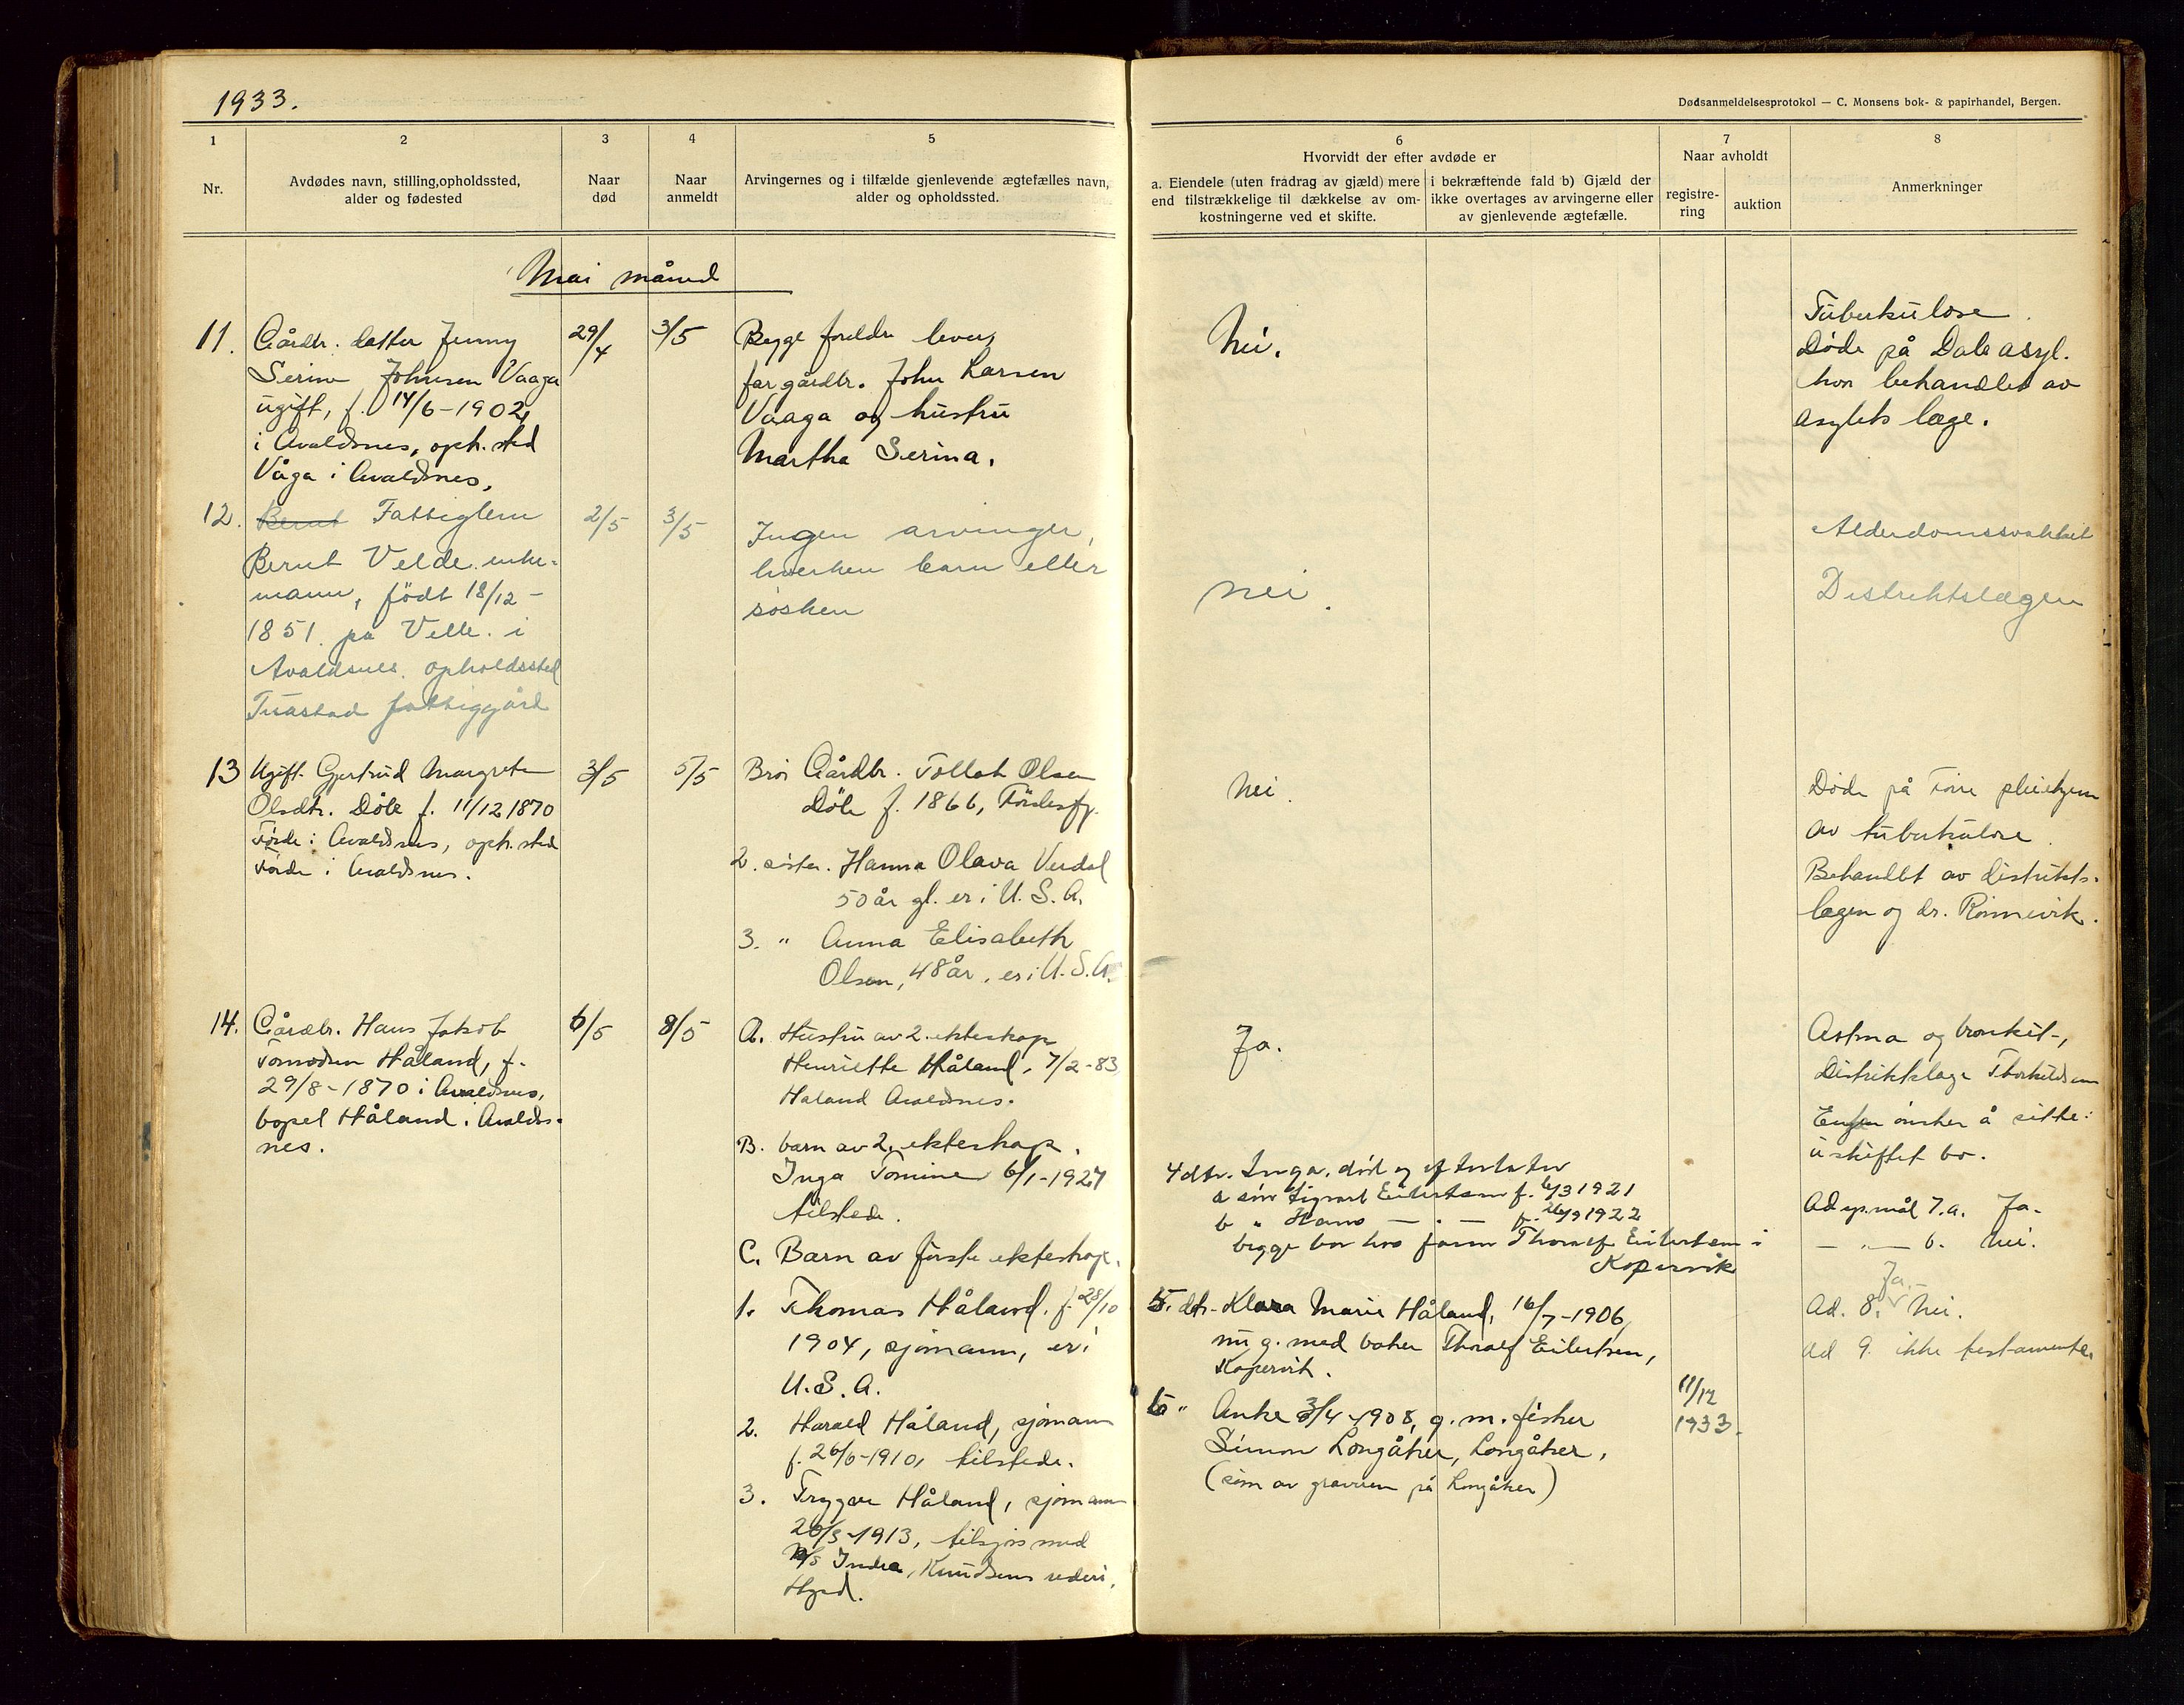 1933.
Dødsanmeldelsesprotokol — C. Monsens bok- & papirhandel, Bergen.
1
2
3
4
5
6
7
8
Nr.
Avdødes navn, stilling, opholdssted,
alder og fødested
Naar
død
Naar
anmeldt
Arvingernes og i tilfælde gjenlevende ægtefælles navn,
alder og opholdssted.
Hvorvidt der efter avdøde er
a. Eiendele (uten fradrag av gjæld) mere
end tilstrækkelige til dækkelse av om-
kostningerne ved et skifte.
i bekræftende fald b) Gjæld der
ikke overtages av arvingerne eller
av gjenlevende ægtefælle.
Naar avholdt
registre-
ring
auktion
Anmerkninger
Mai måned
11.
Gårdbr. datter Jenny
Serine Johnsen Vaaga
ugift, f. 14/6-1902,
i Avaldsnes, oph.sted
Våga i Avaldsnes,
29/4
3/5
Begge foreldre lever,
far gårdbr. John Larsen
Vaaga og hustru
Martha Serina.
Nei.
Tuberkulose.
Døde på Dale asyl.
hvor behandlet av
asylets læge.
12.
Bernt Fattiglem
Bernt Velde enke-
mann, født 18/12-
1851 på Velle i
Avaldsnes. opholdssted
Tuastad fattiggård
2/5
3/5
Ingen arvinger,
hverken barn eller
søsken
nei.
Alderdomssvakhet
Distriktslægen
13
Ugift Gjertrud Margrete
Olsdtr. Døle f. 11/12 1870
Førde i Avaldsnes, oph.sted
Førde i Avaldsnes.
3/5
5/5
Bror Gårdbr. Tollak Olsen
Døle f. 1866, Førdesfj.
2. søster. Hanna Olava Verdal
50 år gl. er i U.S.A.
3. " Anna Elisabeth
Olsen, 48 år, er i U.S.A.
Nei.
Døde på pleiehjem
av tuberkulose.
Behandlet av distrikts-
lægen og dr. Rønnevik.
14.
Gårdbr. Hans Jakob
Tomassen Håland, f.
29/8-1870 i Avaldsnes,
bopel Håland i Avalds-
nes.
6/5
8/5
A. Hustru av 2. ekteskap
Henriette Håland, 7/2-83
Håland Avaldsnes.
B. barn av 2. ekteskap.
Inga Tomine 6/1-1927
tilstede.
C. Barn av første ekteskap.
1. Thomas Håland, f. 28/10
1904, sjømann, er i
U.S.A.
2. Harald Håland, sjømann
f. 26/6-1910, tilstede.
3. Trygve Håland, sjømann
20/5-1913, tilsjøs med
M/S Indra, Knudsens rederi,
Hgsd.
Ja.
4 dtr. Inga, død og efterlater
a søn Sigvart Eilertsen f. 6/3 1921
b " Hans — " — f. 26/9 1922
begge bor hos faren Thoralf Eilertsen i
Kopervik
5. dtr. Klara Marie Håland, 16/7-1906,
nu g. med baker Thoralf Eilertsen,
Kopervik.
6 " Anke 3/4-1908, g. m. fisker
Simon Longåker, Longåker.
(søn av graveren på Longåker)
11/12
1933.
Astma og bronkit-,
Distriktslæge Thorkildsen
Enken ønsker å sitte i
uskiftet bo.
Ad sp.mål 7.a. Ja.
— " — b. Nei.
Ja.
Ad. 8. Nei.
Ad 9. ikke testamente.